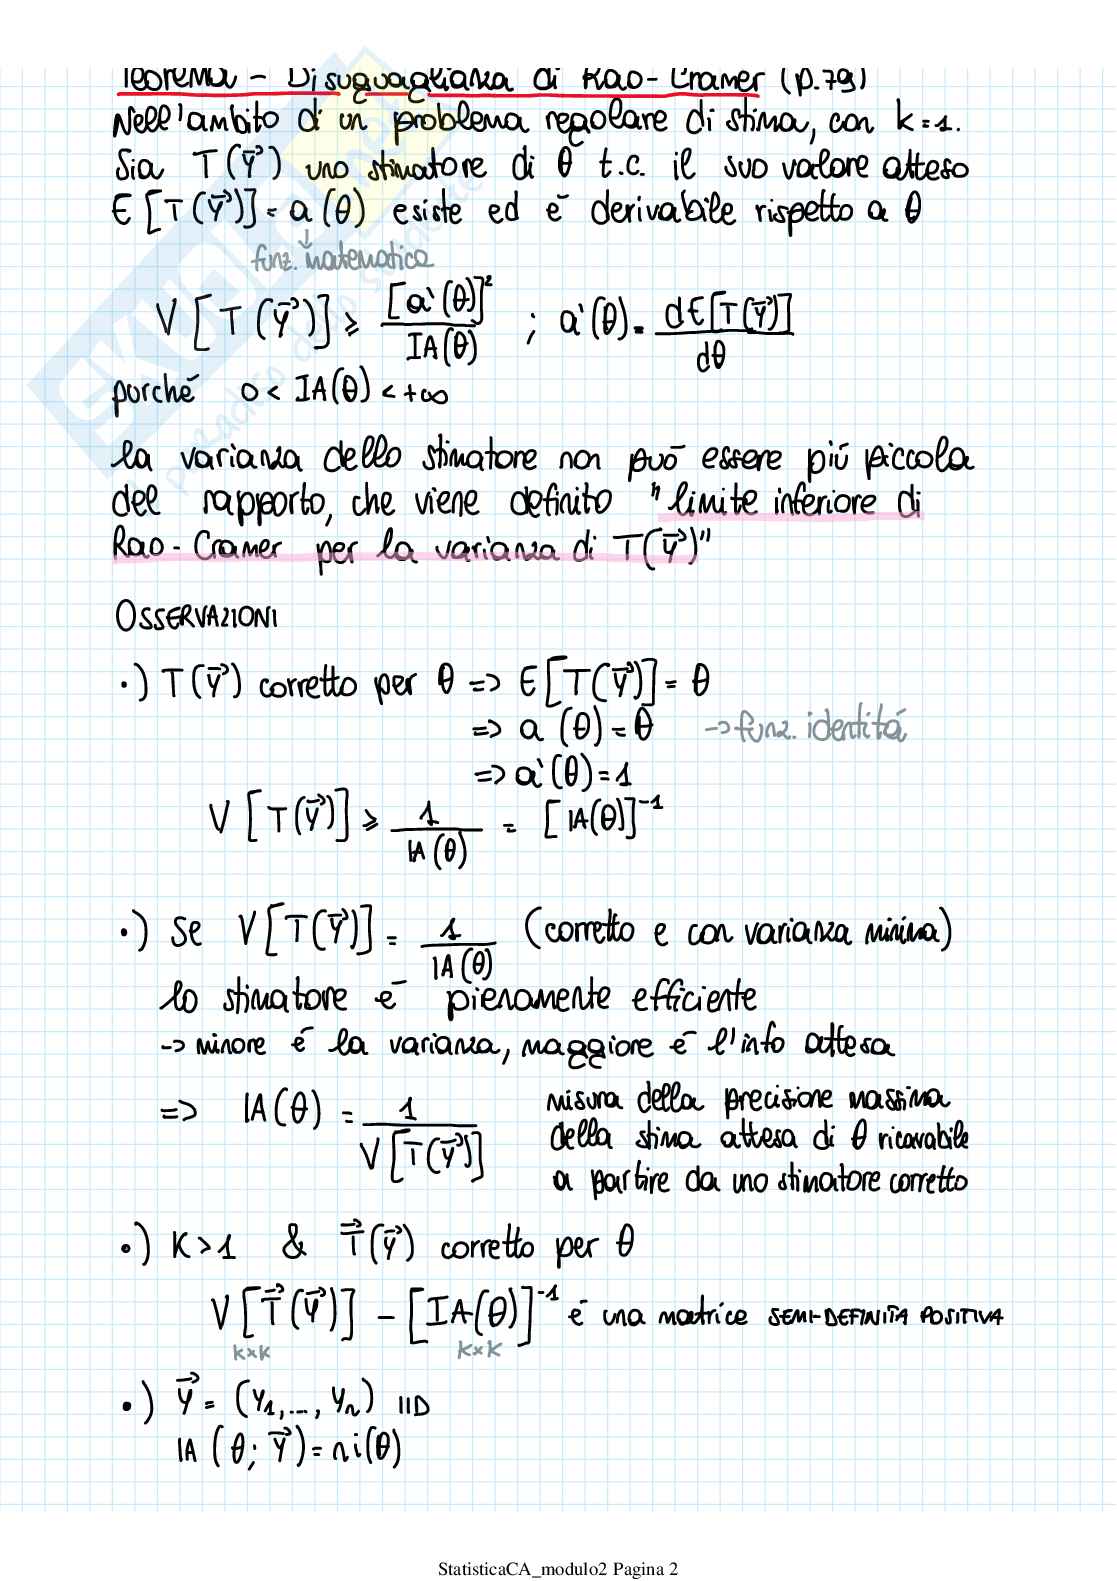 Teorema - Disuguaglianza di Rao-Cramer (p.79)
Nell'ambito di un problema regolare di stima, con k=1.
Sia T(Y⃗) uno stimatore di θ t.c. il suo valore atteso
E[T(Y⃗)] = a(θ) esiste ed é derivabile rispetto a θ
↓
funz. matematica
V[T(Y⃗)] ≥ [a'(θ)]² / IA(θ) ; a'(θ) = dE[T(Y⃗)] / dθ
purché 0 < IA(θ) < +∞
la varianza dello stimatore non puó essere piú piccola
del rapporto, che viene definito "limite inferiore di
Rao-Cramer per la varianza di T(Y⃗)"
OSSERVAZIONI
·) T(Y⃗) corretto per θ => E[T(Y⃗)] = θ
=> a(θ) = θ -> funz. identitá
=> a'(θ) = 1
V[T(Y⃗)] ≥ 1 / IA(θ) = [IA(θ)]⁻¹
·) Se V[T(Y⃗)] = 1 / IA(θ) (corretto e con varianza minima)
lo stimatore é pienamente efficiente
-> minore é la varianza, maggiore é l'info attesa
=> IA(θ) = 1 / V[T(Y⃗)] misura della precisione massima
della stima attesa di θ ricavabile
a partire da uno stimatore corretto
·) K>1 & T⃗(Y⃗) corretto per θ
V[T⃗(Y⃗)] - [IA(θ)]⁻¹ é una matrice SEMI-DEFINITA POSITIVA
k×k k×k
·) Y⃗ = (Y₁,..., Yₙ) IID
IA(θ; Y⃗) = ni(θ)
StatisticaCA_modulo2 Pagina 2